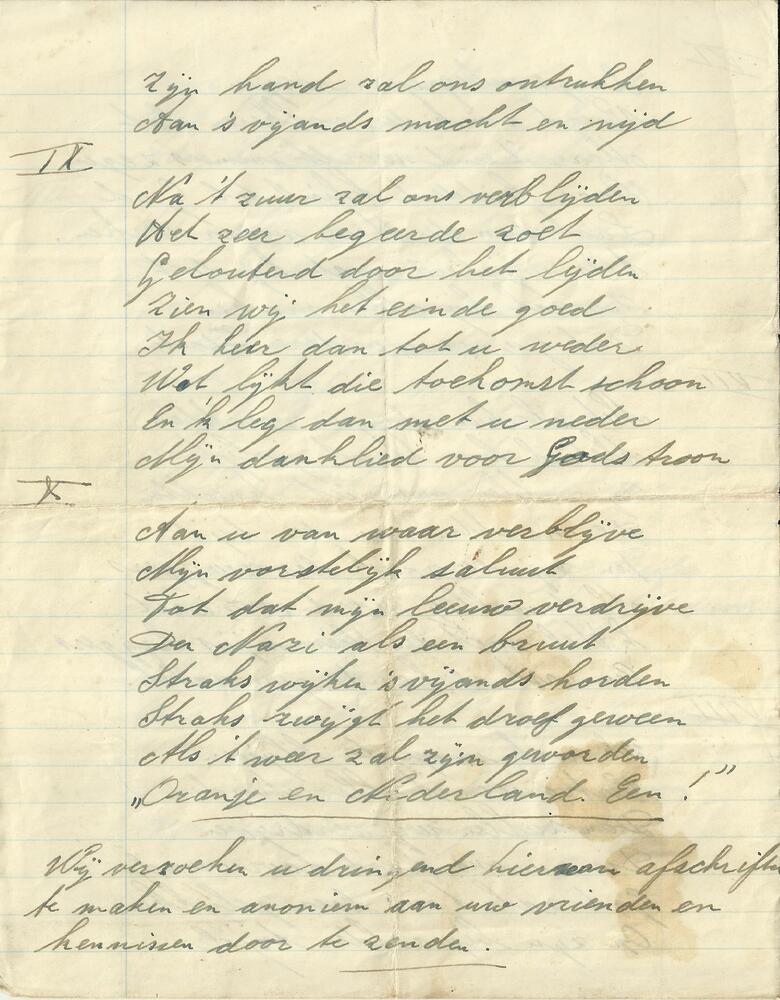 Zijn hand zal ons ontrukken
Aan 's vijands macht en nijd
IX
Na 't zuur zal ons verblijden
Het zeer begeerde zoet
Gelouterd door het lijden
Zien wij het einde goed
Ik keer dan tot u weder
Wat lijkt die toekomst schoon
En 'k leg dan met u neder
Mijn danklied voor Gods troon
X
Aan u van waar verblijve
Mijn vorstelijk saluut
Tot dat mijn leeuw verdrijve
Den Nazi als een bruut
Straks wijken 's vijands horden
Straks zwijgt het droef geween
Als 't weer zal zijn geworden
„Oranje en Nederland. Een!”
Wij verzoeken u dringend hiervan afschriften
te maken en anoniem aan uw vrienden en
kennissen door te zenden.